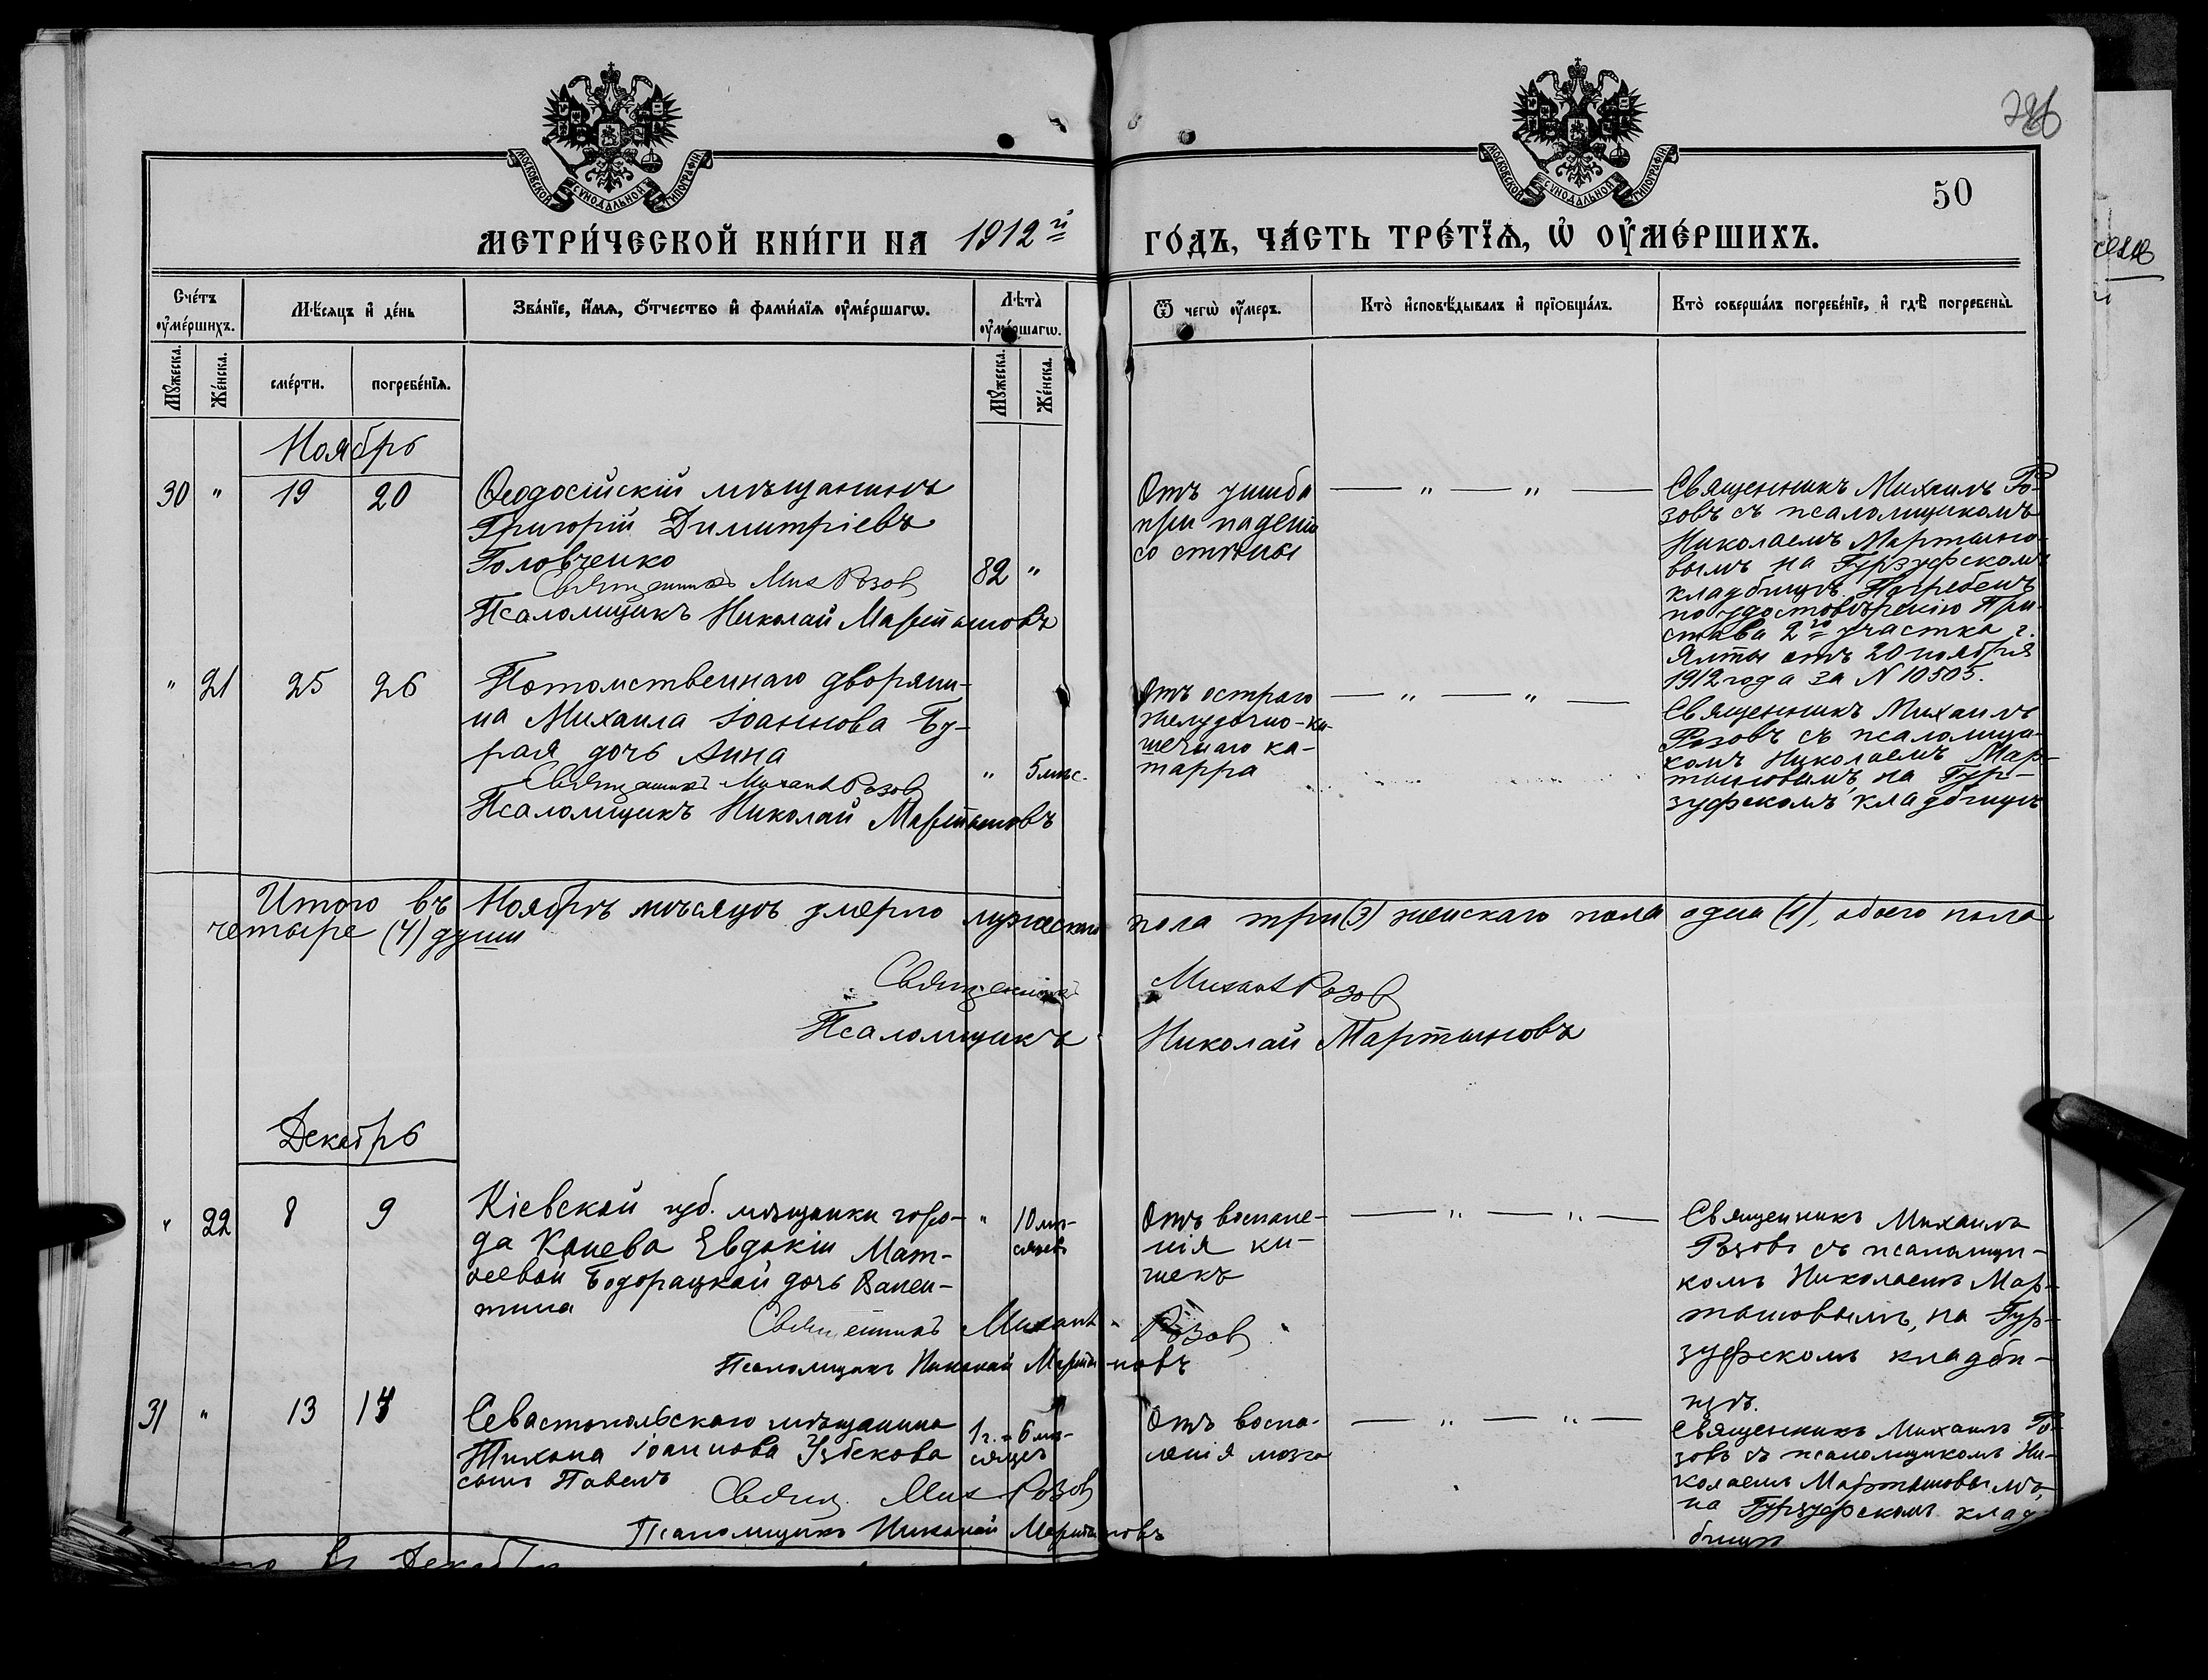 МОСКОВСКОЙ СѴНОДАЛЬНОЙ ТИПОГРАФІИ
МОСКОВСКОЙ СѴНОДАЛЬНОЙ ТИПОГРАФІИ
50
МЕТРИ́ЧЕСКОЙ КНИ́ГИ НА 1912й
ГО́ДЪ, ЧА́СТЬ ТРЕ́ТЇѦ, Ѡ҆ ОУ҆МЕ́РШИХЪ.
Сче́тъ оу҆ме́ршихъ.
Мѣ́сяцъ и҆ де́нь
Зва́нїе, и҆́мѧ, ѻ҆́тчество и҆ фами́лїѧ оу҆ме́ршагѡ.
Лѣ̑та оу҆ме́ршагѡ.
Ѿ чегѡ̀ оу҆́меръ.
Кто̀ и҆сповѣ́дывалъ и҆ прїѡбща́лъ.
Кто̀ соверша́лъ погребе́нїе, и҆ гдѣ̀ погребены̀.
Мꙋ́жеска.
Же́нска.
сме́рти.
погребе́нїѧ.
Мꙋ́жеска.
Же́нска.
Ноябрь
30 " 19 20
Ѳеодосійскій мѣщанинъ
Григорій Димитріевъ
Головченко
82 "
Священникъ Мих Розов
Псаломщикъ Николай Мартыновъ
Отъ ушиба
при паденіи
со стѣны
— " — " —
Священникъ Михаилъ Ро-
зовъ съ псаломщикомъ
Николаемъ Мартыно-
вымъ на Гурзуфскомъ
кладбищѣ. Погребенъ
по удостовѣренію При-
става 2го участка г.
Ялты отъ 20 ноября
1912 года за N 10505.
" 21 25 26
Потомственнаго дворяни-
на Михаила Іоаннова Бу-
рая дочь Анна
" 5 мѣс.
Священникъ Михаил Розов
Псаломщикъ Николай Мартыновъ
Отъ остраго
желудочно-ки-
шечнаго ка-
тарра
— " — " —
Священникъ Михаилъ
Розовъ съ псаломщи-
комъ Николаемъ Мар-
тыновымъ, на Гур-
зуфскомъ кладбищѣ
Итого въ Ноябрѣ мѣсяцѣ умерло мужескаго пола три (3) женскаго пола одна (1), обоего пола
четыре (4) души
Священникъ Михаил Розов
Псаломщикъ Николай Мартыновъ
Декабрь
" 22 8 9
Кіевской губ. мѣщанки горо-
да Канева Евдокіи Мат-
ѳеевой Бодорацкой дочь Вален-
тина
" 10 мѣ-
сяцевъ
Священникъ Михаил Розов
Псаломщикъ Николай Мартыновъ
Отъ воспале-
нія ки-
шекъ
— " — " —
Священникъ Михаилъ
Розовъ съ псаломщи-
комъ Николаемъ Мар-
тыновымъ, на Гур-
зуфскомъ кладби-
щѣ.
31 " 13 14
Севастопольскаго мѣщанина
Тихона Іоаннова Узбекова
сынъ Павелъ
1 г. 6 мѣ-
сяцевъ
Свящ. Мих Розов
Псаломщикъ Николай Мартыновъ
Отъ воспа-
ленія мозга
— " — " —
Священникъ Михаилъ Ро-
зовъ съ псаломщикомъ Ни-
колаемъ Мартыновымъ,
на Гурзуфскомъ клад
бищѣ